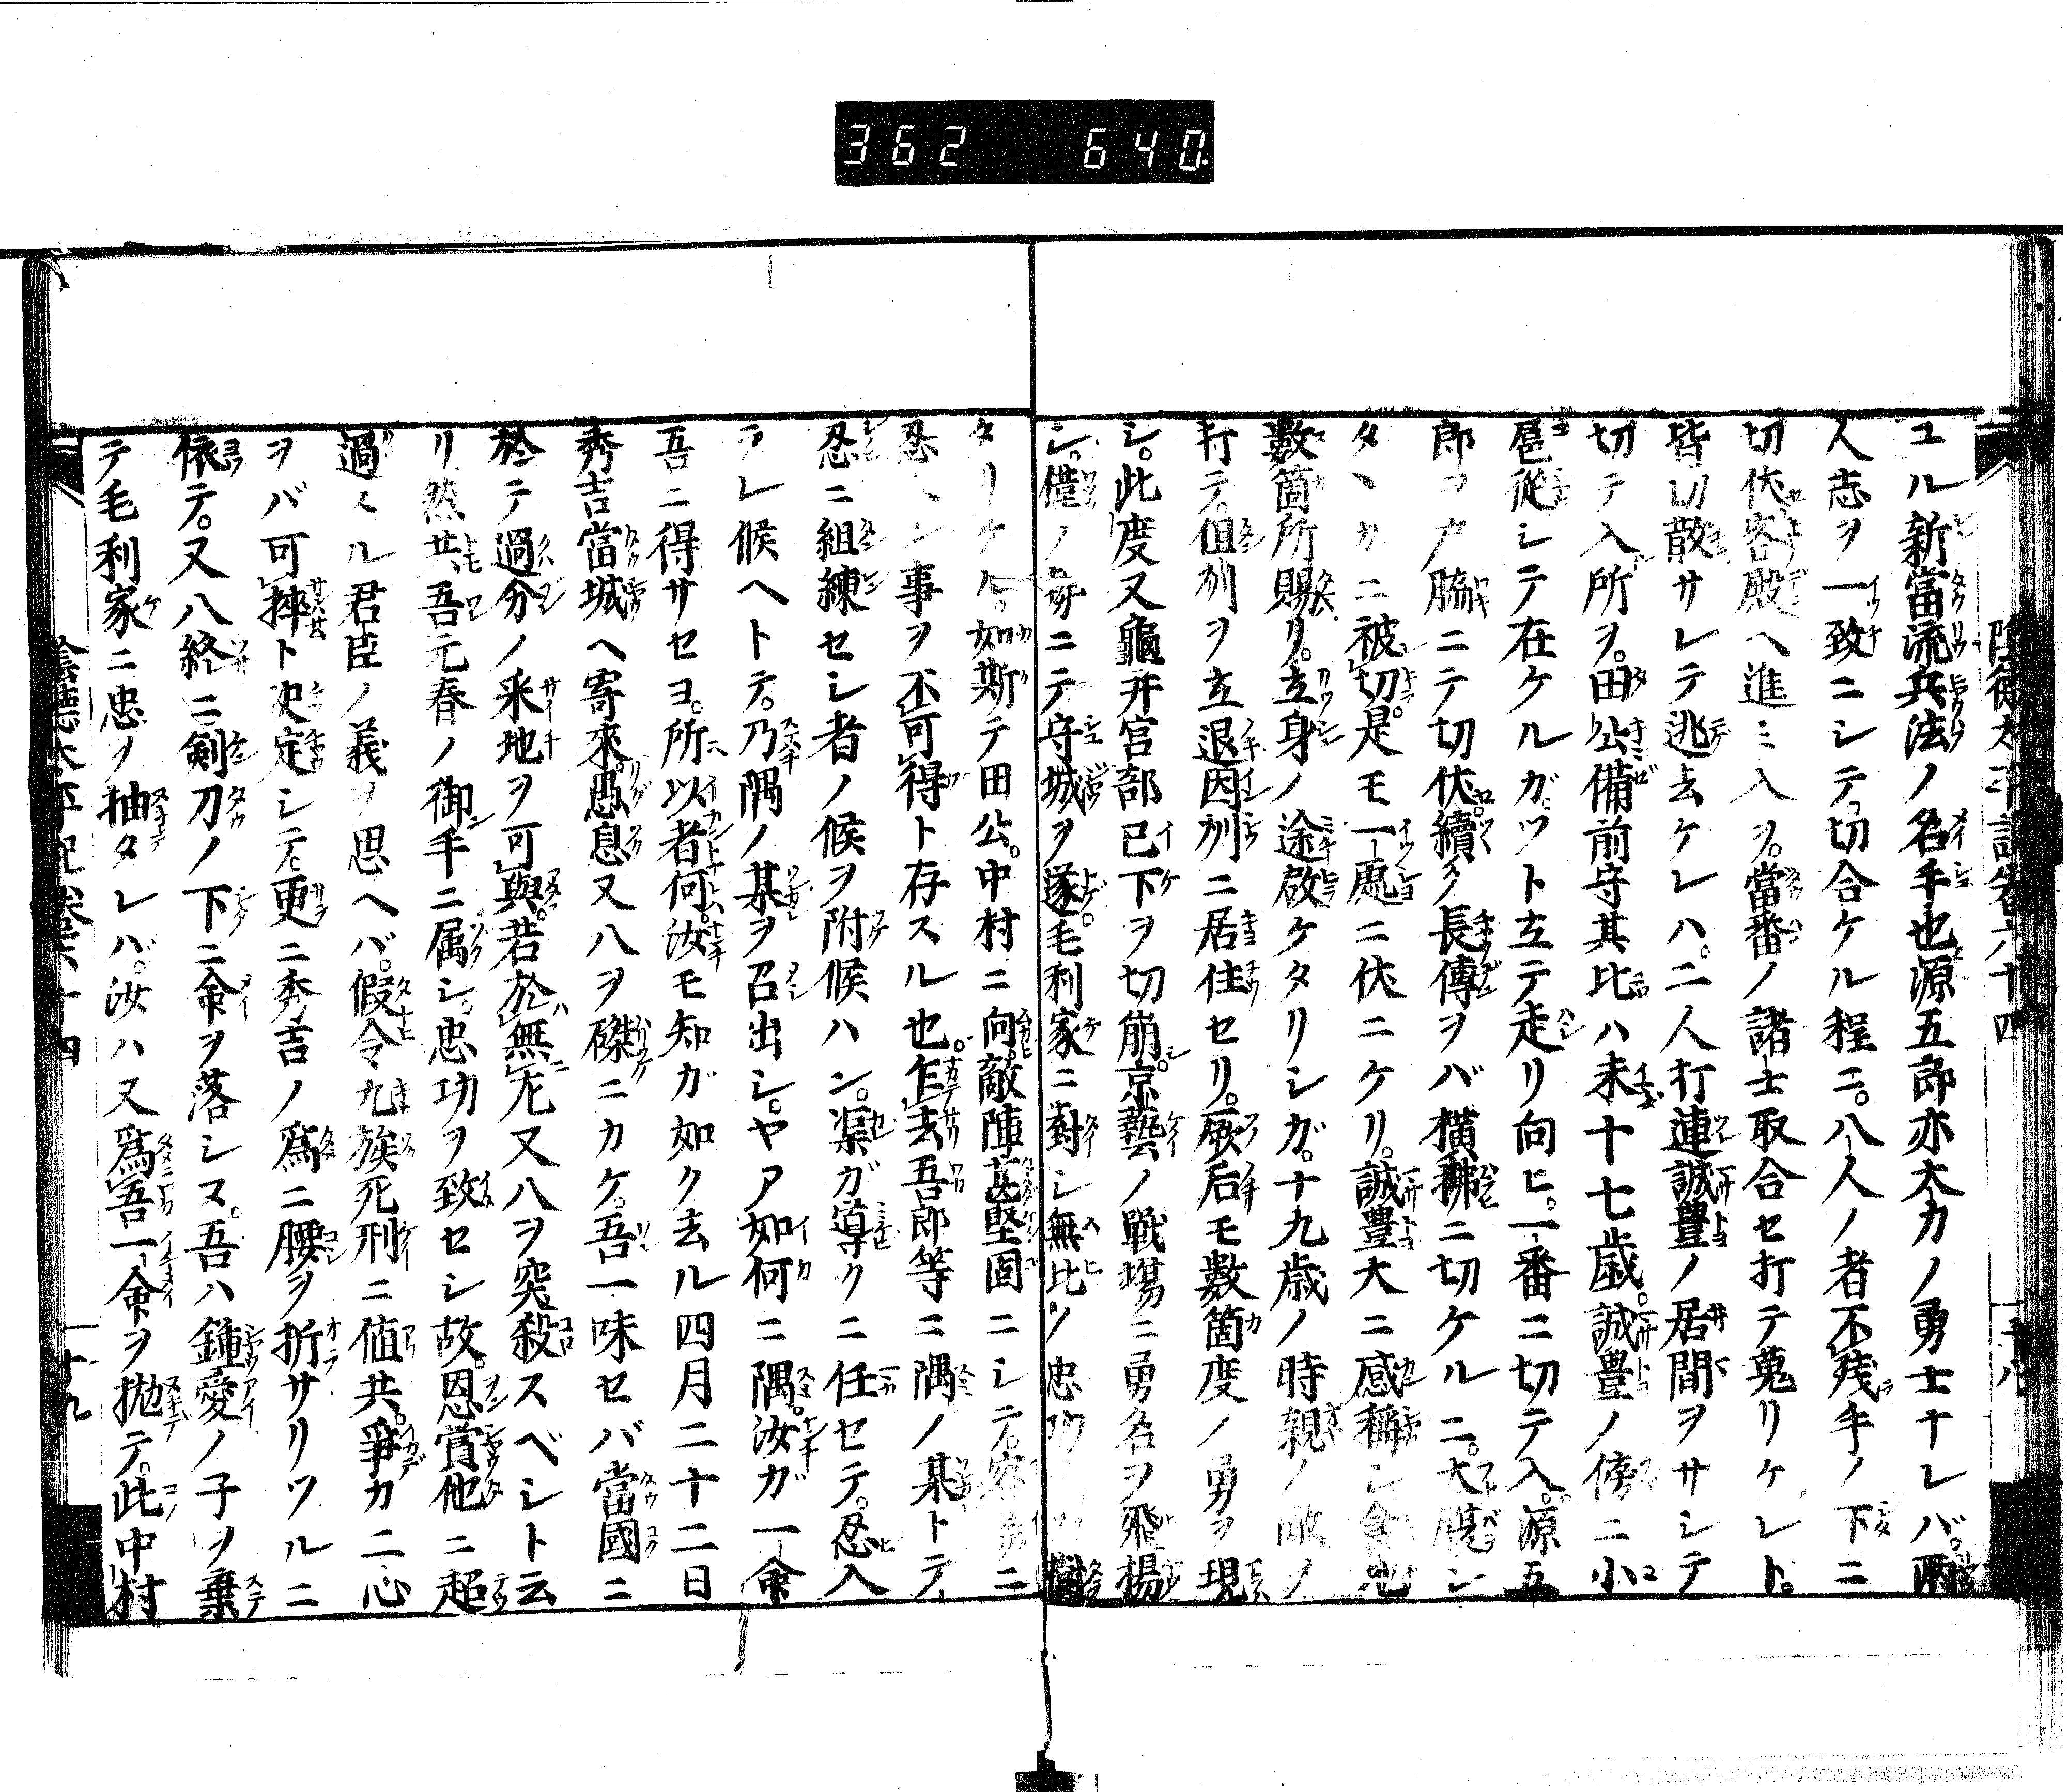 362 640.
陰德太平記卷六十四
ユル新當流兵法ノ名手也源五郎亦大力ノ勇士ナレバ。兩
人志ヲ一致ニシテ。切合ケル程ニ。八人ノ者不殘手ノ下ニ
切伏客殿ヘ進ミ入ヲ。當番ノ諸士取合セ打テ蒐リケレト。
皆切散サレテ逃去ケレハ。二人打連誠豐ノ居間ヲサシテ
切テ入所ヲ。田公備前守其比ハ未十七歳。誠豐ノ傍ニ小
扈從シテ在ケルガ。ツト立テ走リ向ヒ。一番ニ切テ入。源五
郎ヲ戸脇ニテ切伏。續ク長傳ヲバ横拂ニ切ケルニ。大腹シ
タヽカニ被切。是モ一處ニ伏ニケリ。誠豐大ニ感稱シ食地
數箇所賜リ。立身ノ途啟ケタリシガ。十九歳ノ時親ノ敵ノ
打テ。但刕ヲ立退因刕ニ居住セリ。厥后モ數箇度ノ勇ヲ現
シ。此度又龜井宮部已下ヲ切崩。京藝ノ戰塲ニ勇名ヲ飛揚
シ。僅ノ勢ニテ守城ヲ遂。毛利家ニ對シ無比ノ忠功
タリケル。如斯テ田公。中村ニ向。敵陣甚堅固ニシテ。容易ニ
忍ヽン事ヲ不可得ト存スル也。乍去吾郎等ニ隅ノ某トテ。
忍ニ組練セシ者ノ候ヲ附候ハン。渠ガ導クニ任セテ。忍入
ラレ候ヘトテ。乃隅ノ某ヲ召出シ。ヤア如何ニ隅。汝ガ一命
吾ニ得サセヨ。所以者何。汝モ知ガ如ク去ル四月二十二日
秀吉當城ヘ寄來。愚息又八ヲ磔ニカケ。吾一味セバ當國ニ
於テ過分ノ釆地ヲ可與。若於無尤又八ヲ突殺スベシト云
リ然共。吾元春ノ御手ニ属シ。忠功ヲ致セシ故。恩賞他ニ超
過スル君臣ノ義ヲ思ヘバ。假令九族死刑ニ値共。爭カ二心
ヲバ可挿ト决定シテ。更ニ秀吉ノ爲ニ腰ヲ折サリツルニ
依テ。又八終ニ剣刀ノ下ニ命ヲ落シヌ。吾ハ鍾愛ノ子ヲ棄
テ毛利家ニ忠ヲ抽タレバ。汝ハ又爲吾一命ヲ抛テ。此中村
陰德太平記卷六十四
一十九